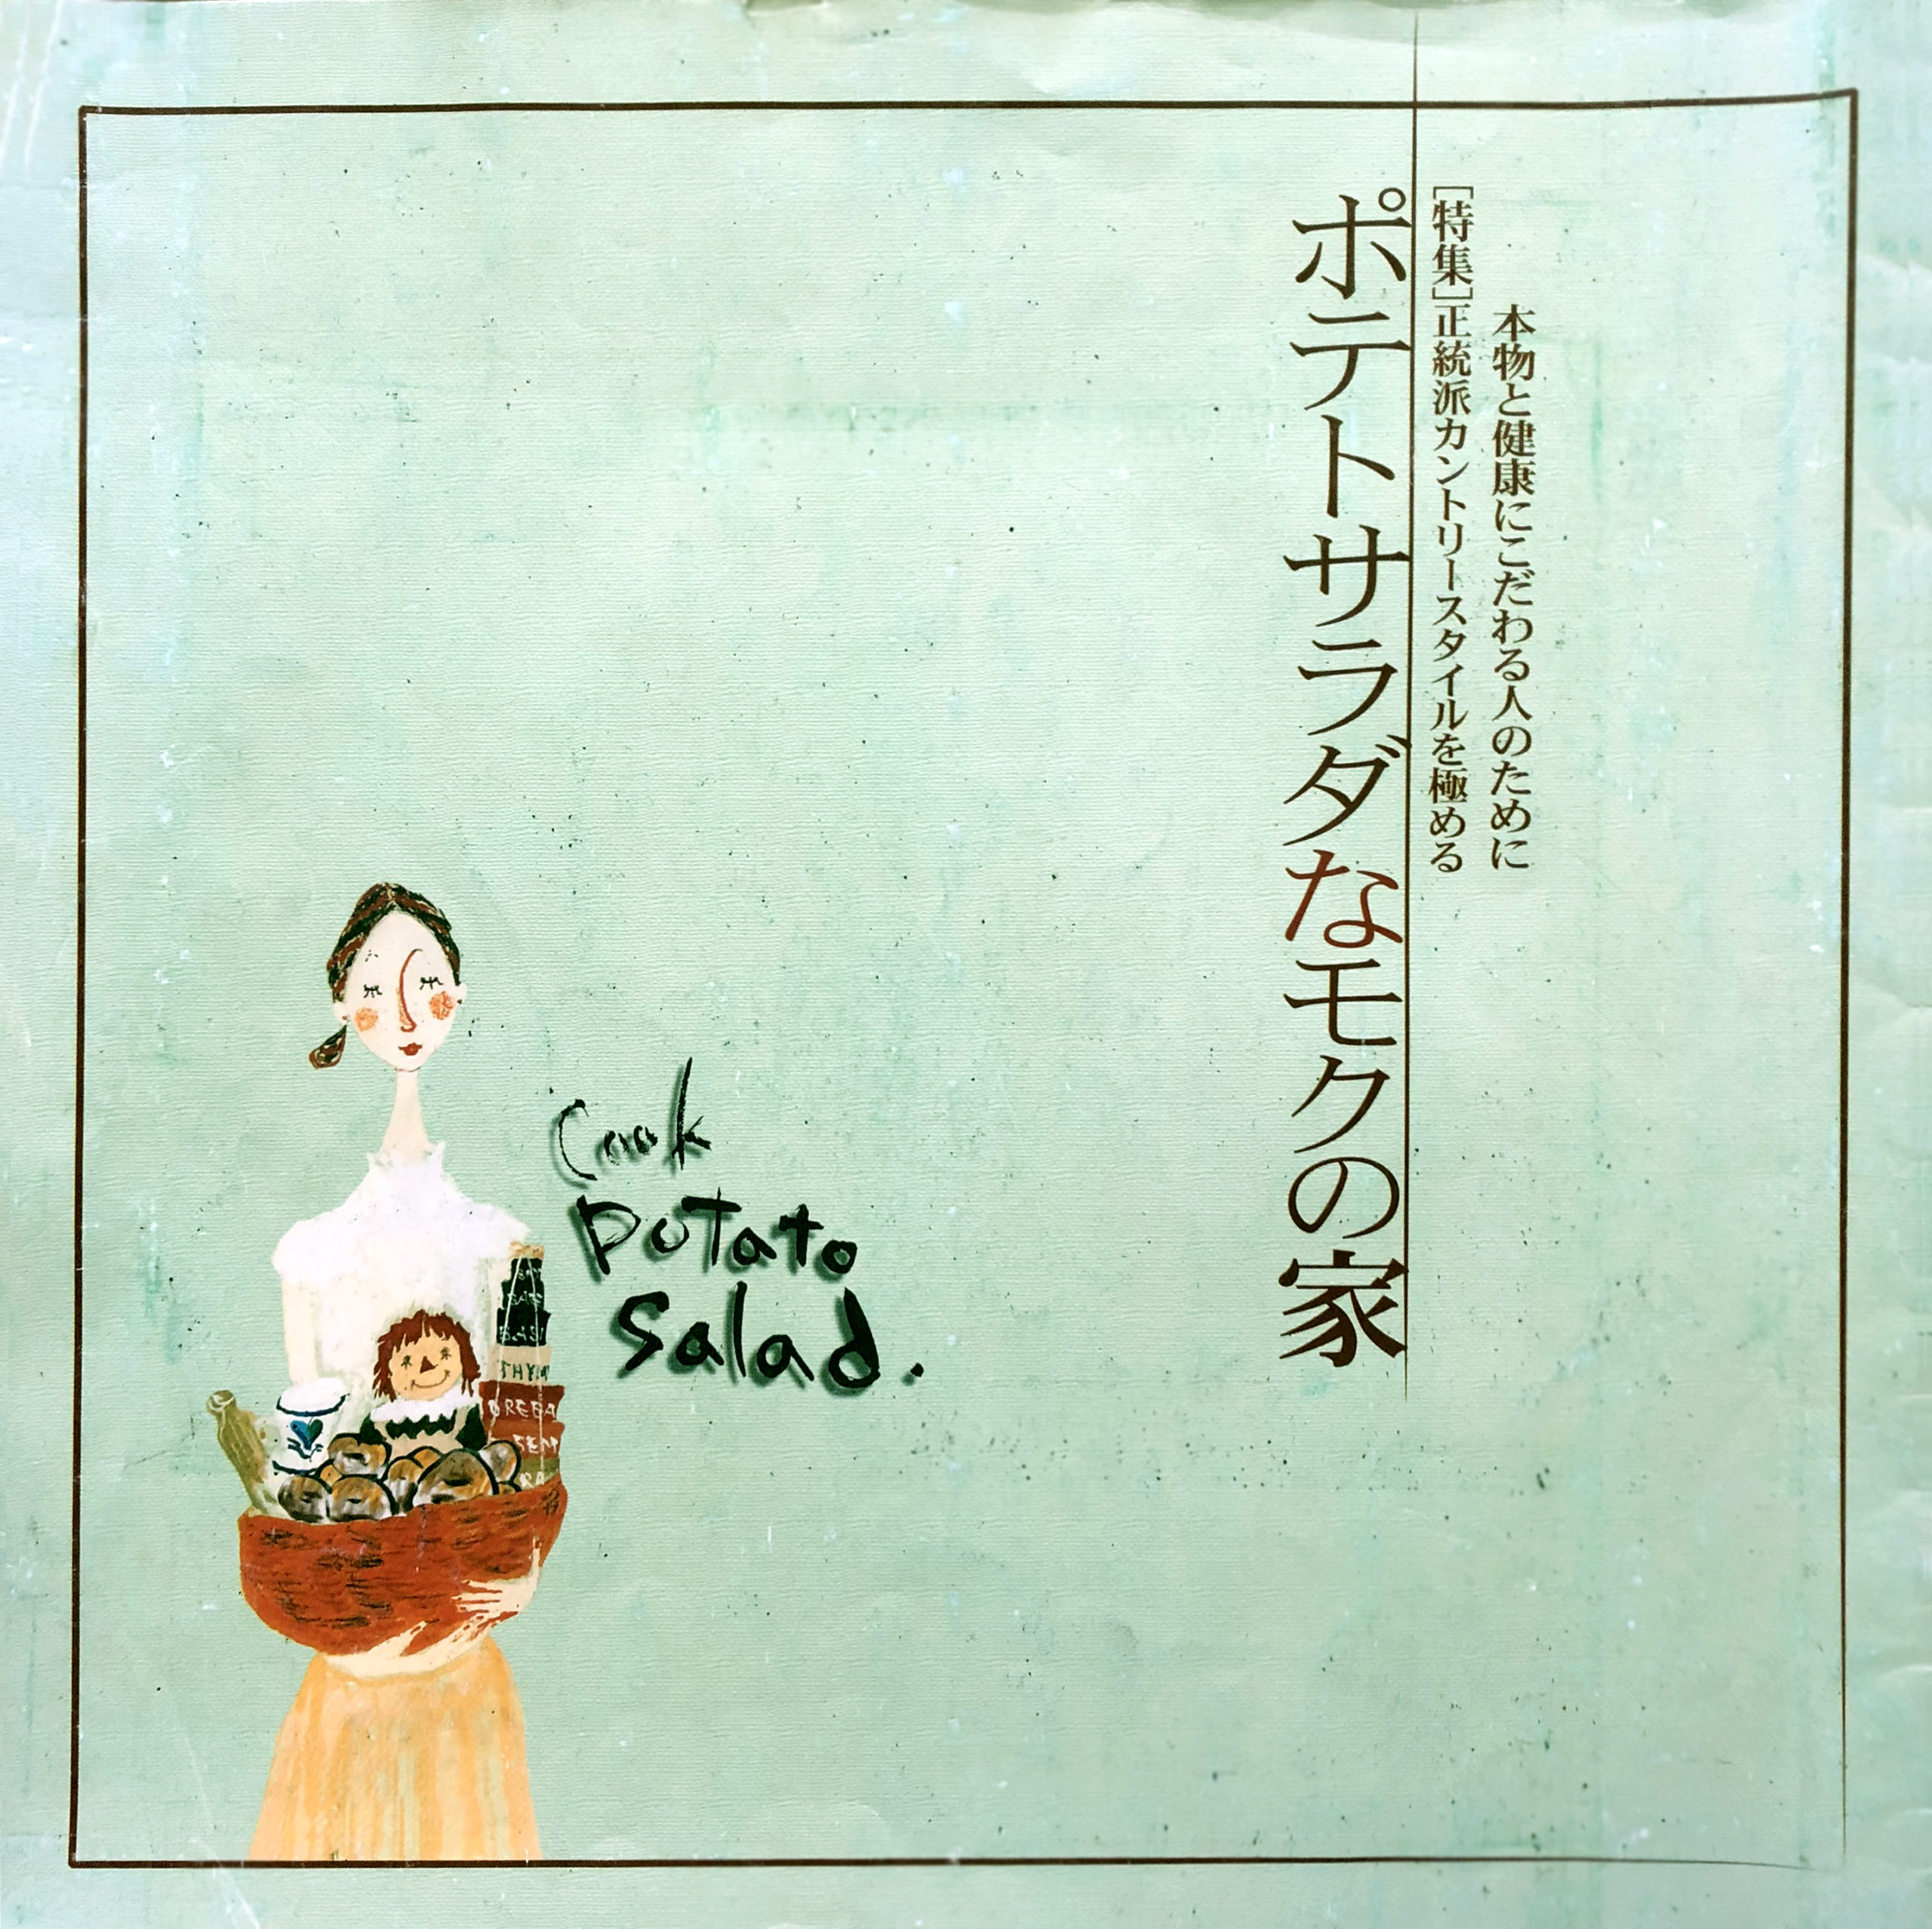 本物と健康にこだわる人のために
[特集]正統派カントリースタイルを極める
ポテトサラダなモクの家
Cook
Potato
Salad.